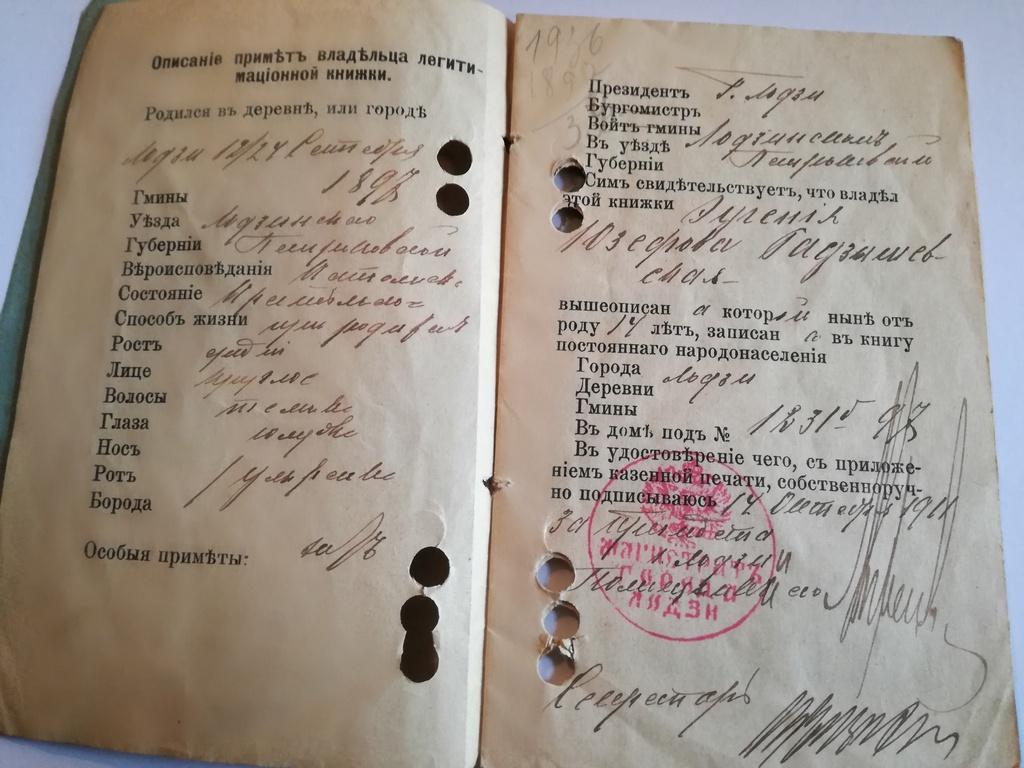 Описаніе примѣтъ владѣльца легити-
маціонной книжки.
Родился въ деревнѣ, или городѣ
Лодзи 12/24 Сентября
1897
Гмины
Уѣзда Лодзинскаго
Губерніи Петроковской
Вѣроисповѣданія Католич.
Состояніе
Способъ жизни при родителяхъ
Ростъ средній
Лице круглое
Волосы темные
Глаза голубые
Носъ
Ротъ умѣрен.
Борода
Особыя примѣты: нѣтъ
1936
1897
3
Президентъ г. Лодзи
Бургомистръ
Войтъ гмины
Въ уѣздѣ Лодзинскомъ
Губерніи Петроковской
Симъ свидѣтельствуетъ, что владѣл
этой книжки Эугенія
Юзефова
ская
вышеописан а котор ой нынѣ отъ
роду 14 лѣтъ, записан а въ книгу
постояннаго народонаселенія
Города Лодзи
Деревни
Гмины
Въ домѣ подъ № 1231
Въ удостовѣреніе чего, съ приложе-
ніемъ казенной печати, собственноруч-
но подписываюсь 14 Октября 1911
За Президента
г. Лодзи
МАГИСТРАТЪ
ГОРОДА
ЛОДЗИ
Секретарь